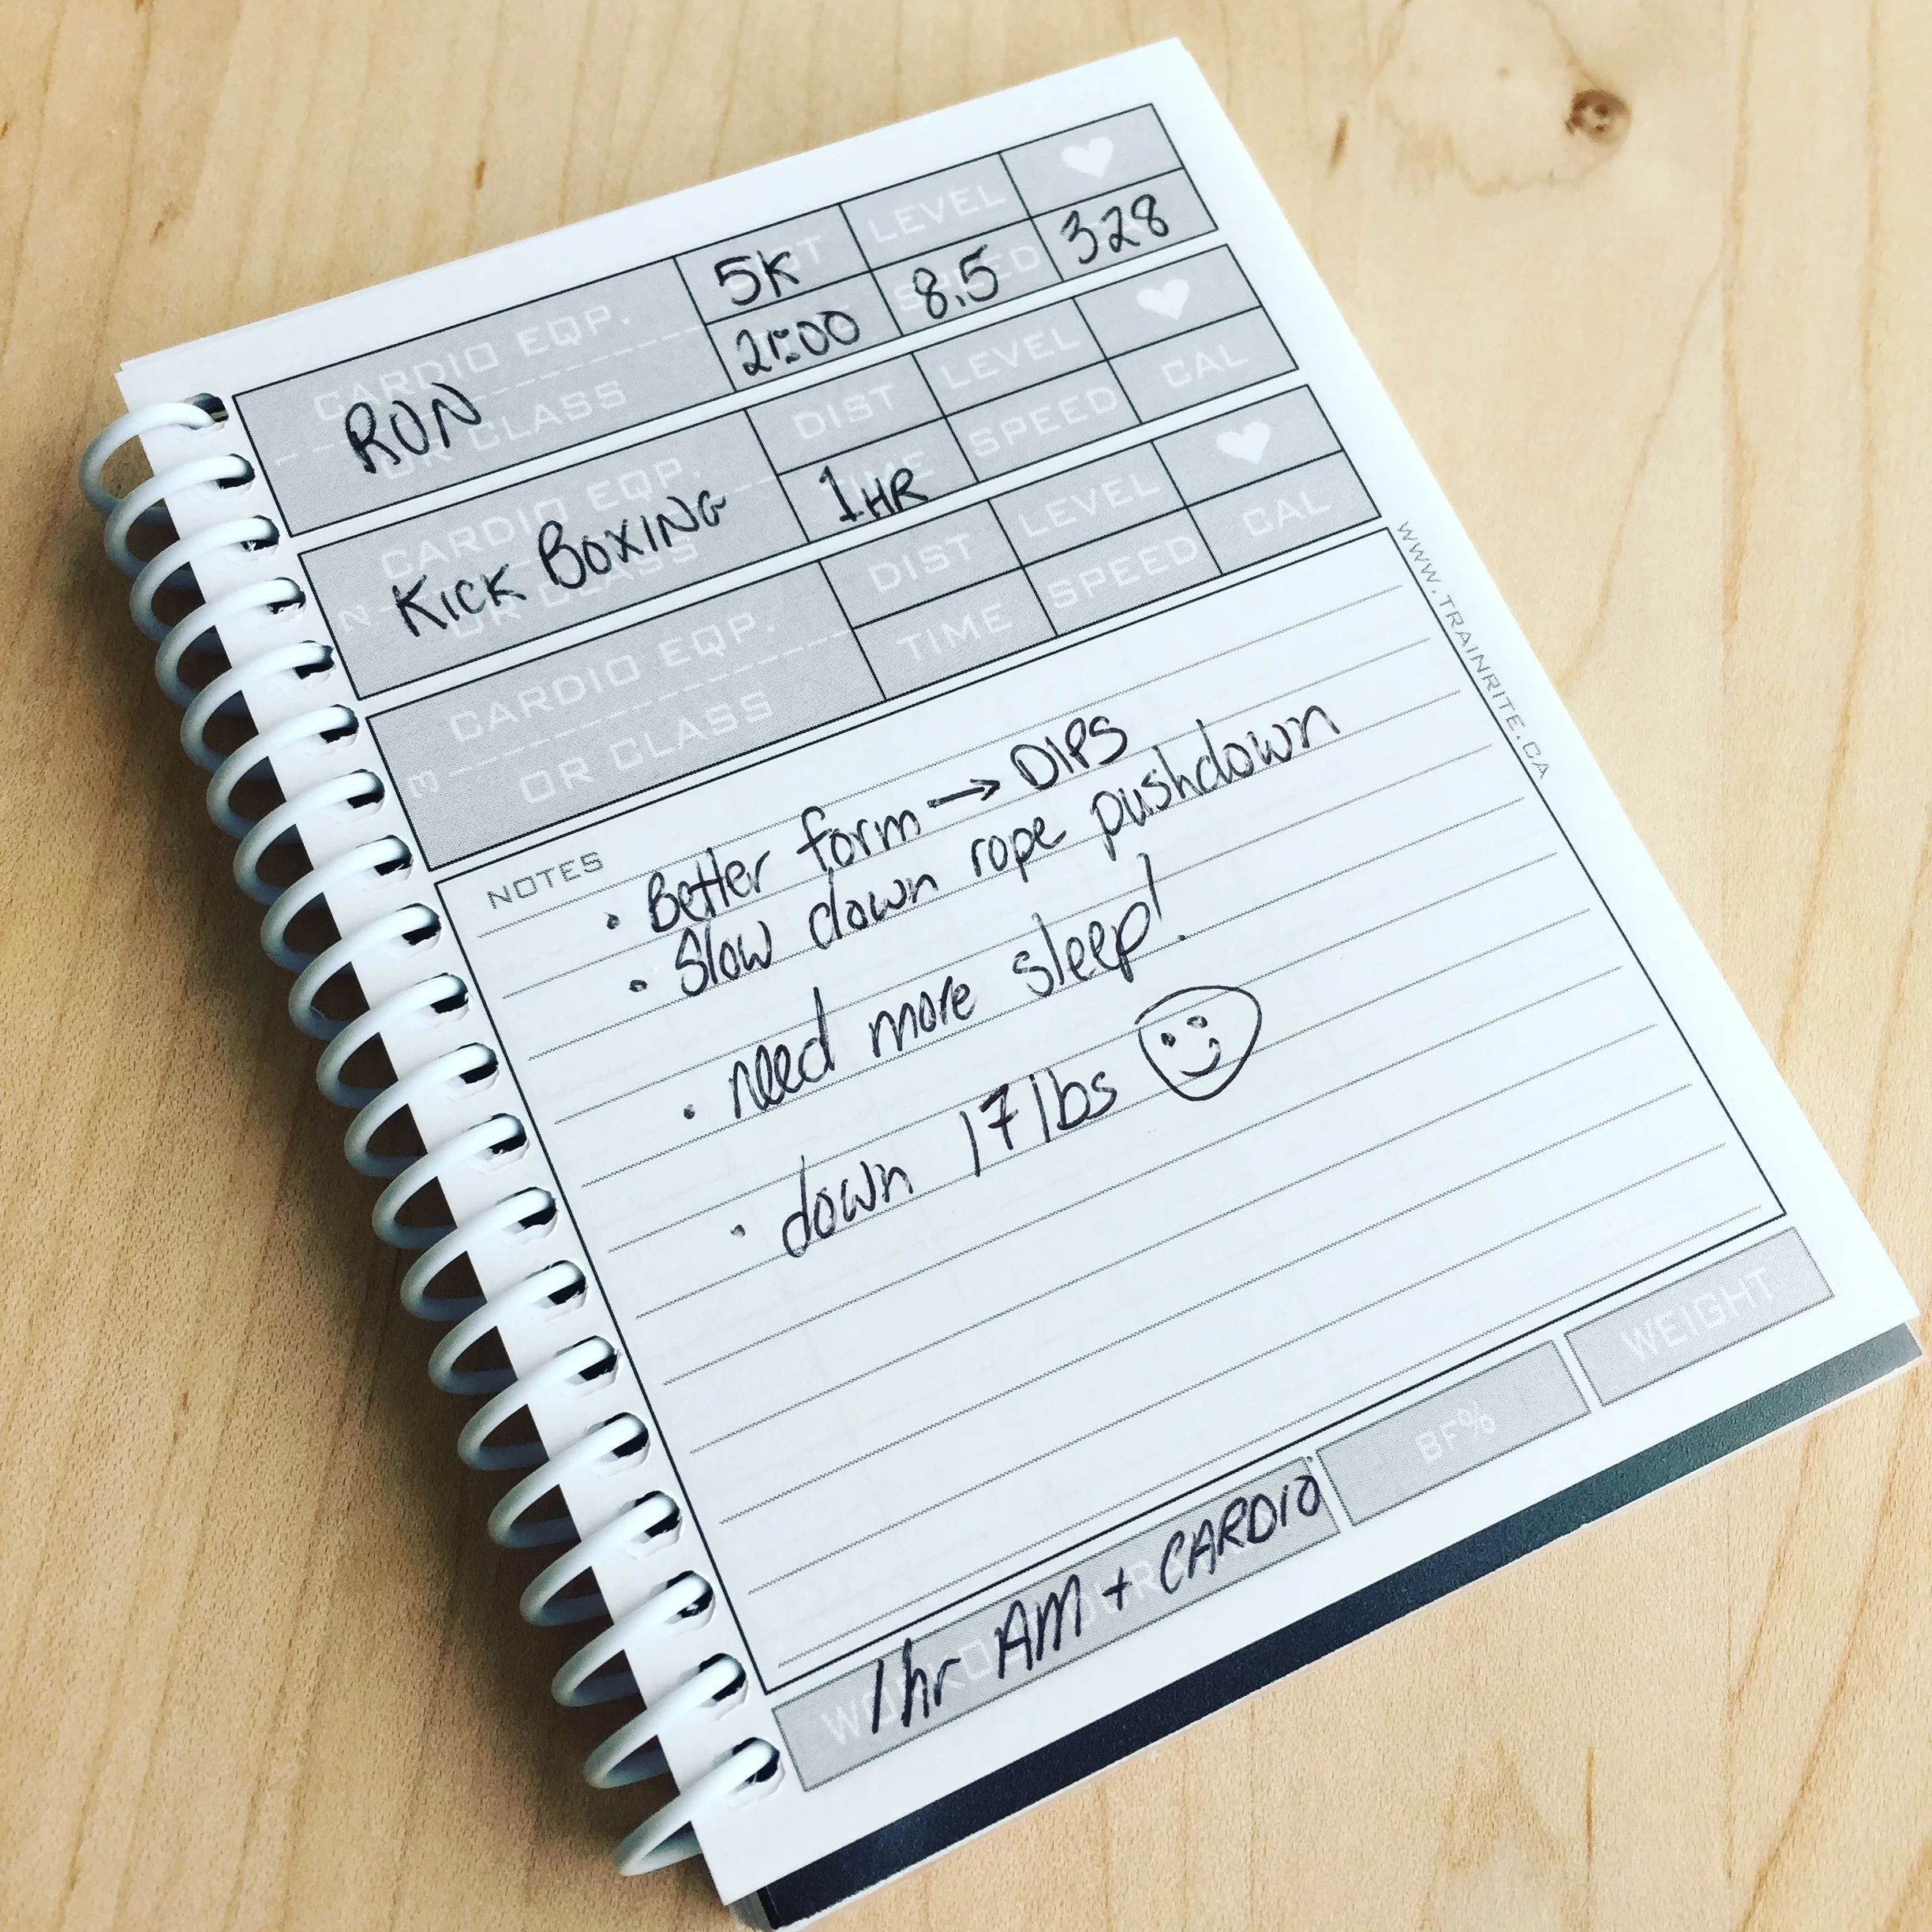 CARDIO EQP. OR CLASS
RUN
5K
LEVEL
21:00
8.5
328
CARDIO EQP. OR CLASS
KICK BOXING
DIST
LEVEL
1 HR
SPEED
CAL
CARDIO EQP.
OR CLASS
DIST
LEVEL
TIME
SPEED
CAL
NOTES
• Better form → DIPS
• Slow down rope pushdown
• need more sleep!
• down 17 lbs
1hr AM + CARDIO
BF%
WEIGHT
WWW.TRAINRITE.CA